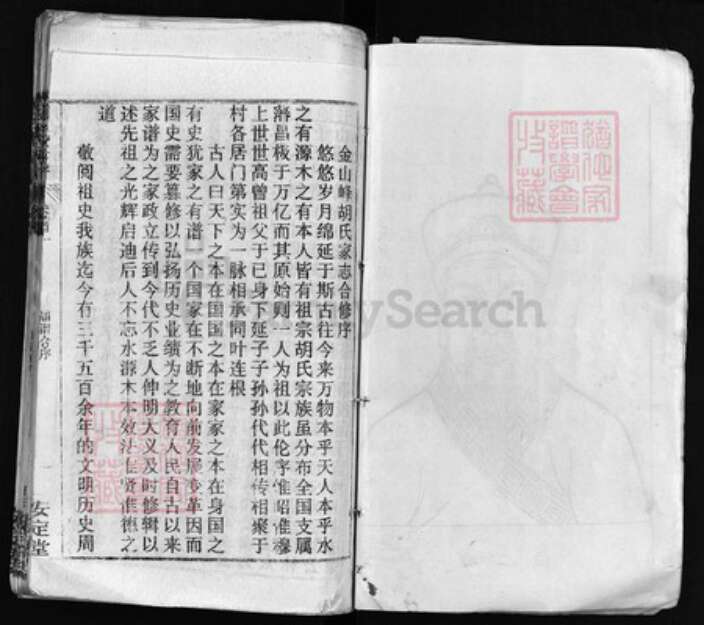 金山峰胡氏家志合修序
悠悠岁月绵延于斯古往今来万物本乎天人本乎水
之有源木之有本人皆有祖宗胡氏宗族虽分布全国支属
瀋昌板于万亿而其原始则一人为祖以此伦字惟昭惟穆
上世世高曾祖父于已身下延子子孙孙代代相传相聚于
村各居门第实为一脉相承同叶连根
古人曰天下之本在国国之本在家家之本在身国之
有史犹家之有谱一个国家在不断地向前发展变革因而
国史需要纂修以弘扬历史业绩为之教育人民自古以来
家谱为之家政立传到今代不乏人仲明大义及时修辑以
述先祖之光辉启迪后人不忘水源木本效法圣贤惟德之
道
敬阅祖史我族迄今有三千五百余年的文明历史周
安定堂
MySearch